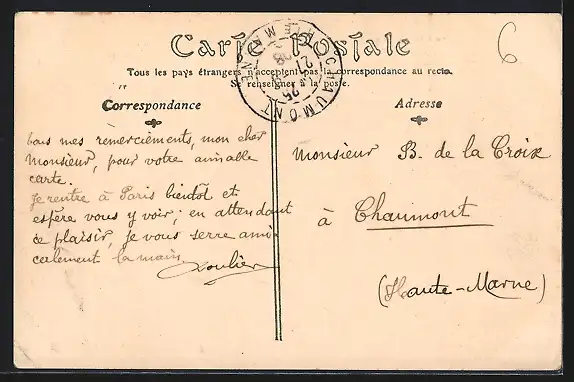 Carte Postale
Tous les pays étrangers n'acceptent pas la correspondance au recto.
Se renseigner à la poste.
6
CHAUMONT
Correspondance
tous mes remerciements, mon cher
Monsieur, pour votre aimable
carte.
Je rentre à Paris bientôt et
espère vous y voir; en attendant
ce plaisir, je vous serre ami
calement la main.
Adresse
Monsieur B. de la Croix
à Chaumont
(Haute-Marne)